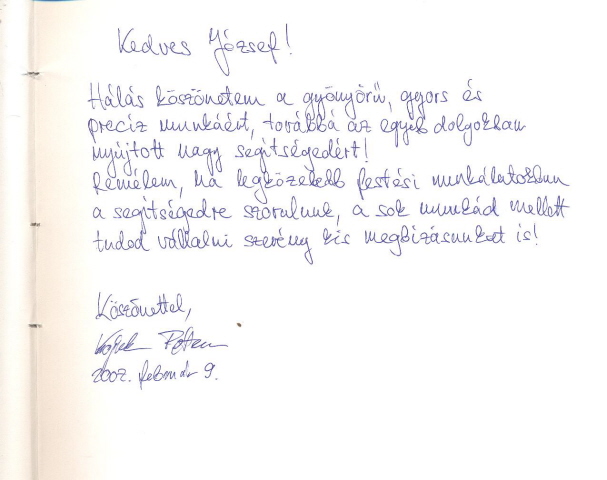 Kedves József!
Hálás köszönetem a gyönyörű, gyors és
precíz munkáért, továbbá az egyéb dolgokban
nyújtott nagy segítségedért!
Remélem, ha legközelebb festési munkálatokban
a segítségedre szorulunk, a sok munkád mellett
tudod vállalni szerény kis megbízásunkat is!
Köszönettel,
2002. február 9.